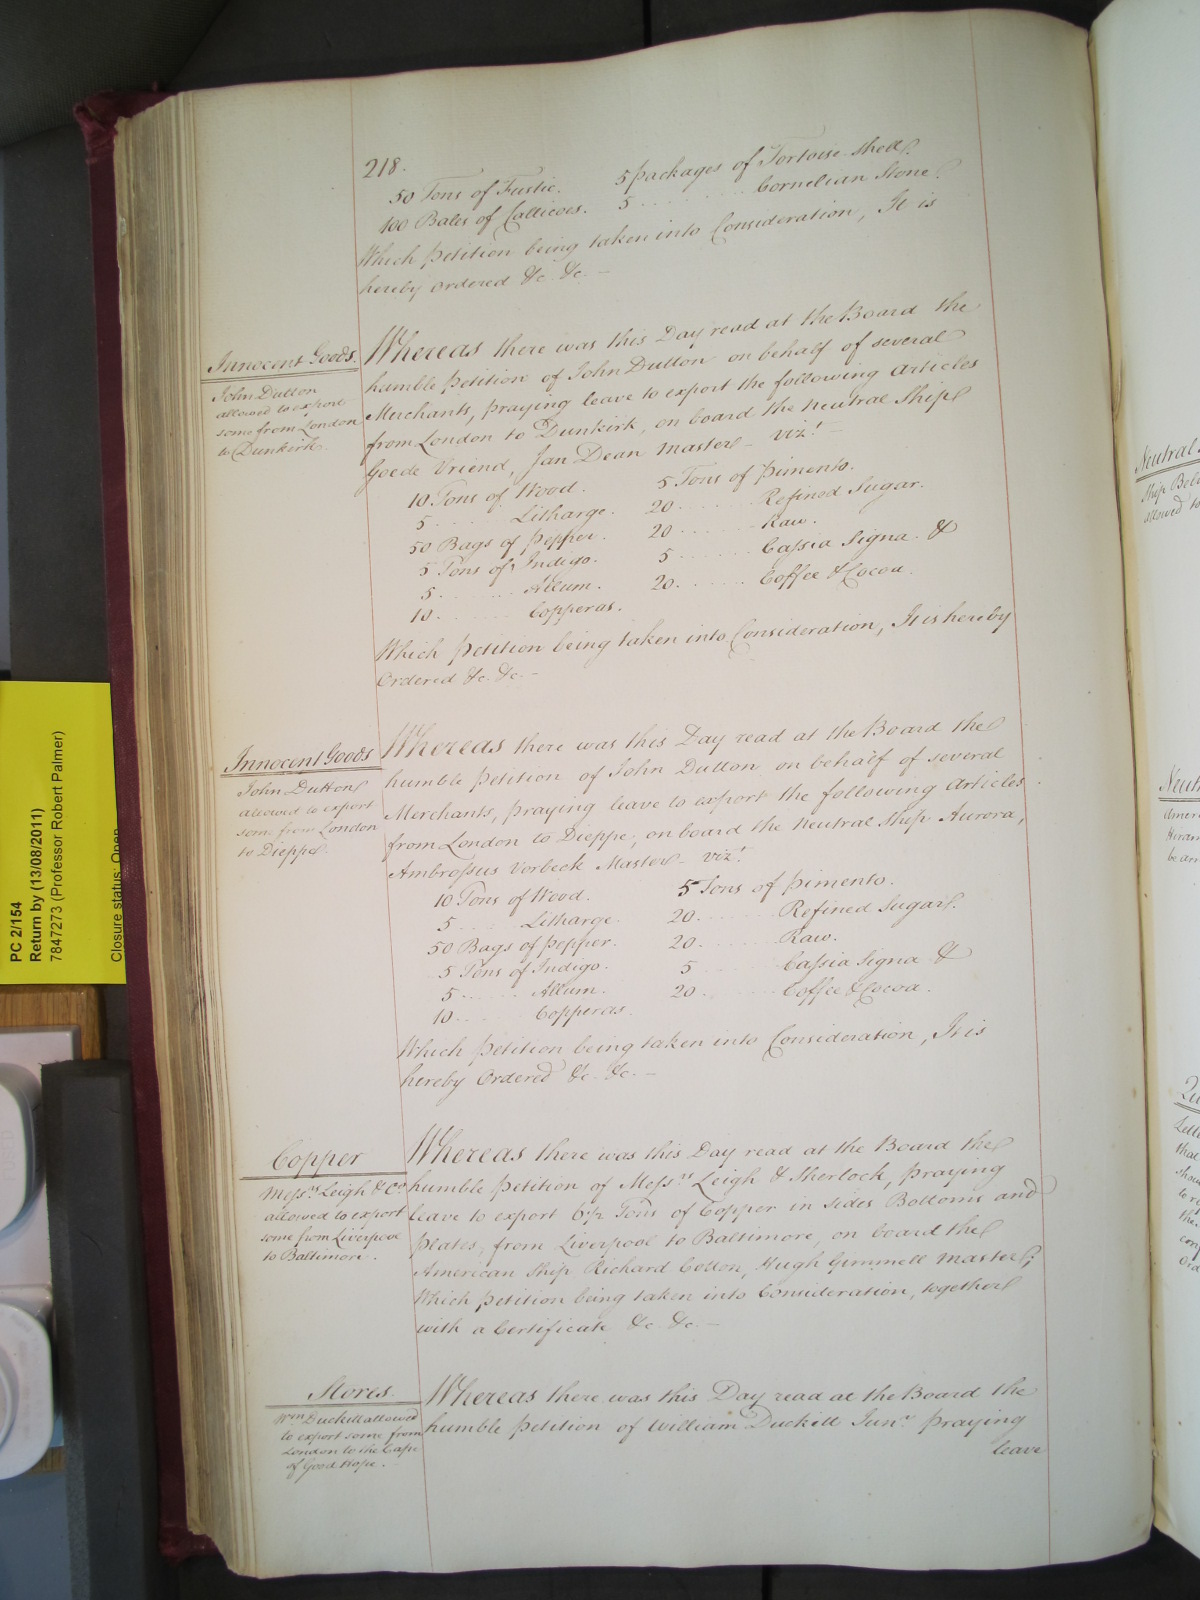 218.
50 Tons of Fustic. 5 packages of Tortoise shell.
100 Bales of Callicoes. 5 . . . . . . . . Cornelian Stone.
Which Petition being taken into Consideration, It is
hereby Ordered &c. &c. —
Innocent Goods.
John Dutton
allowed to export
some from London
to Dunkirk.
Whereas there was this Day read at the Board the
humble Petition of John Dutton on behalf of several
Merchants, praying leave to export the following Articles
from London to Dunkirk, on board the Neutral Ship
Goede Vriend, Jan Dean Master – vizt. —
10. Tons of Wood. 5 Tons of Pimento.
5 . . . . . Litharge. 20 . . . . . . Refined Sugar.
50 Bags of Pepper. 20 . . . . . . Raw.
5 Tons of Indigo. 5 . . . . . . Cassia Signa. &
5 . . . . . . Allum. 20 . . . . . . Coffee & Cocoa.
10 . . . . . . Copperas.
Which Petition being taken into Consideration, It is hereby
Ordered &c. &c. —
Innocent Goods
John Dutton
allowed to export
some from London
to Dieppe.
Whereas there was this Day read at the Board the
humble Petition of John Dutton on behalf of several
Merchants, praying leave to export the following Articles
from London to Dieppe, on board the Neutral Ship Aurora,
Ambrossus Vorbeck Master – vizt.
10 Tons of Wood. 5 Tons of Pimento.
5 . . . . . Litharge. 20 . . . . . . Refined Sugar.
50 Bags of Pepper. 20 . . . . . . Raw.
5 Tons of Indigo. 5 . . . . . . Cassia Signa &
5 . . . . . . Allum. 20 . . . . . . Coffee & Cocoa.
10 . . . . . . Copperas.
Which Petition being taken into Consideration, It is
hereby Ordered &c. &c. —
Copper
Messrs. Leigh & Co.
allowed to export
some from Liverpool
to Baltimore.
Whereas there was this Day read at the Board the
humble Petition of Messrs. Leigh & Sherlock, praying
leave to export 6½ Tons of Copper in sides Bottoms and
Plates, from Liverpool to Baltimore, on board the
American Ship Richard Colton, Hugh Gimmell Master;
Which Petition being taken into Consideration, together
with a Certificate &c. &c. —
Stores.
Wm. Duckill allowed
to export some from
London to the Cape
of Good Hope. —
Whereas there was this Day read at the Board the
humble Petition of William Duckill Junr. praying
leave
PC 2/154
Return by (13/08/2011)
7847273 (Professor Robert Palmer)
Closure status: Open
Neutral
Ship
allowed to